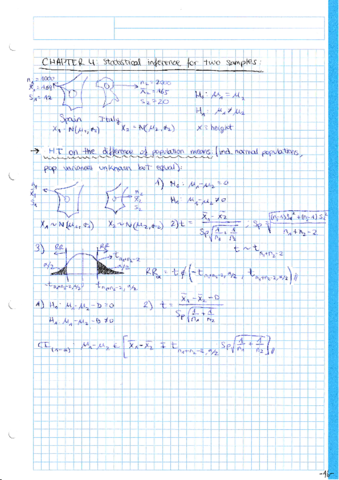 CHAPTER 4. Statistical inference for two samples.
n₂=2000
x̄₂=165
S₂=20
H₀: μ₁ = μ₂
H₁: μ₁ ≠ μ₂
Spain Italy
X₁ ~ N(μ₁, σ₁) X₂ ~ N(μ₂, σ₂) X = height
→ HT on the difference of population means (ind. normal populations,
pop variances unknown but equal):
1) H₀: μ₁-μ₂ = 0
H₁: μ₁-μ₂ ≠ 0
X₁ ~ N(μ₁, σ₁) X₂ ~ N(μ₂, σ₂) 2) t =
x̄₁ - x̄₂
Sp√(1/n₁ + 1/n₂)
n₁+n₂-2
t ~ t n₁+n₂-2
3) RR RR
t n₁+n₂-2
α/2
-t n₁+n₂-2, α/2 t n₁+n₂-2, α/2
t ∉ (-t n₁+n₂-2, α/2 , t n₁+n₂-2, α/2)
1) H₀: μ₁-μ₂-D=0 2) t =
H₁: μ₁-μ₂-D≠0
Sp√(1/n₁ + 1/n₂)
μ₁-μ₂ ∈ [x̄₁-x̄₂ ∓ t n₁+n₂-2, α/2 Sp√(1/n₁ + 1/n₂)]
-46-